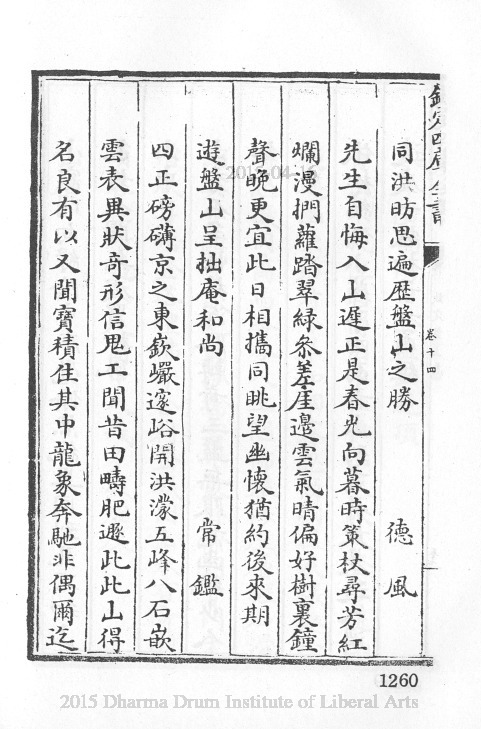 欽定四庫全書
卷十四
同洪昉思遍歷盤山之勝 德風
先生自悔入山遲正是春光向暮時策杖尋芳紅
爛漫捫蘿踏翠綠參差崖邊雲氣晴偏好樹裏鐘
聲晚更宜此日相攜同眺望幽懷猶約後來期
遊盤山呈拙庵和尚 常鑑
四正磅礴京之東嶔巗邃峪開洪濛五峰八石嵌
雲表異狀奇形信鬼工聞昔田疇肥遯此此山得
名良有以又聞寶積住其中龍象奔馳非偶爾迄
1260
2015 Dharma Drum Institute of Liberal Arts